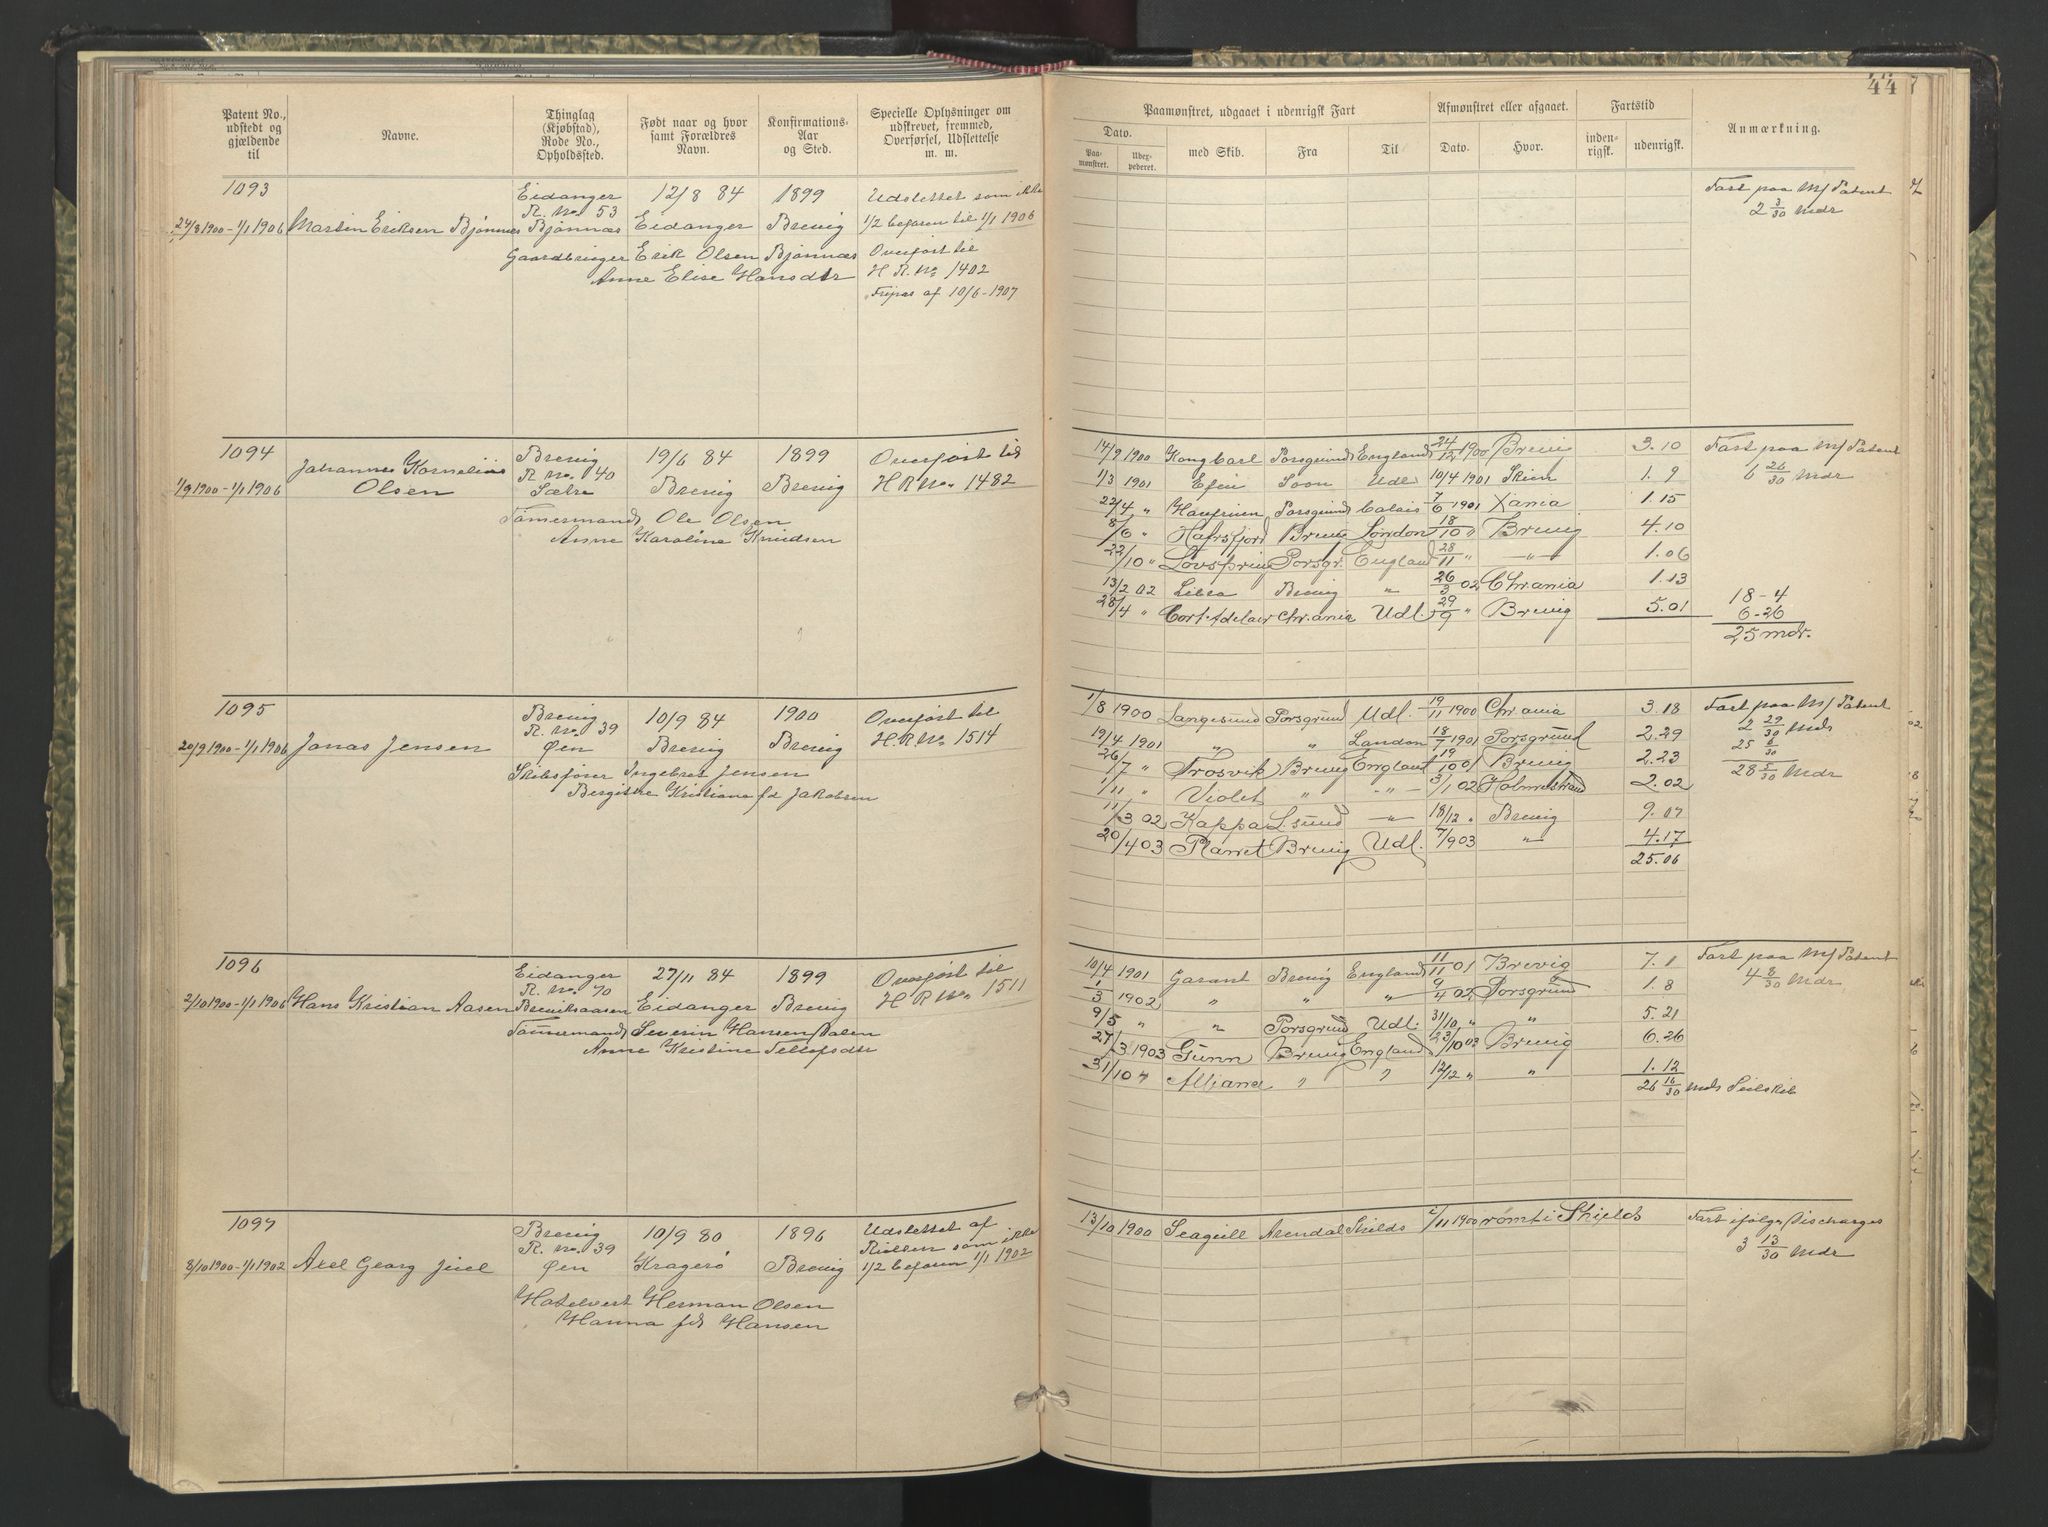 44
Patent No., udstedt og gjældende til
Navne.
Thinglag (Kjøbstad), Rode No., Opholdssted.
Født naar og hvor samt Forældres Navn.
Konfirmations-Aar og Sted.
Specielle Oplysninger om udskrevet, fremmed, Overførsel, Udslettelse m. m.
Paamønstret, udgaaet i udenrigsk Fart
Afmønstret eller afgaaet.
Fartstid
Anmærkning.
Dato.
Paa-mønstret.
Udex-pederet.
med Skib.
Fra
Til
Dato.
Hvor.
inden-rigsk.
udenrigsk.
1093
24/8 1900 - 1/1 1906 Martin Eriksen Bjønnes
Eidanger
R. No. 53
Bjønnæs
12/8 84
Eidanger
1899
Brevig
Udslettet som ikke
1/2 befaren til 1/1 1906
Gaardbruger Erik Olsen Bjønnæs
Anne Elise Hansdtr
Overført til
H. R. No. 1402
Fripas af 10/6-1907
Fart paa M/ Patent
2 3/30 Mdr
1094
1/9 1900 - 1/1 1906
Johannes Kornelius
Olsen
Brevig
R. No. 40
Sætre
19/6 84
Brevig
1899
Brevig
Overført til
H R No. 1482
Tømermand Ole Olsen
Anne Karoline Knudsen
14/9 1900 Kong Carl Porsgrund England 24/12 1900 Brevig 3.10
Fart paa M/ Patent
6 26/30 Mdr
1/3 1901 Soon Udl 10/4 1901 Skien 1. 9
22/4 " Havfruen Porsgrund Calais 7/6 1901 Xania 1.15
8/6 " Hafrsfjord Brevig London 18/10 " Brevig 4.10
22/10 " Løvspring Porsgr. England 28/11 " — " — 1.06
13/2 02 Libra Brevig " 26/3 02 Chr.ania 1.13
28/4 " Cort Adelaer Chr.ania Udl. 29/9 " Brevig 5.01
18-4
6-26
25 mdr.
1095
20/9 1900 - 1/1 1906 Jonas Jensen
Brevig
R. No. 39
Øen
10/9 84
Brevig
1900
Brevig
Overført til
H. R No. 1514
Skibsfører Ingebret Jensen
Bergitte Kristiana fd Jakobsen
1/8 1900 Langesund Porsgrund Udl. 19/11 1900 Chr.ania 3.18
Fart paa M/ Patent
2 29/30 Mdr
25 6/30
28 5/30 Mdr
19/4 1901 " " London 18/7 1901 Porsgrund 2.29
26/7 " Trosvik Brevig England 19/10 01 Brevig 2.23
1/11 " Violet " — " — 3/1 02 Holmestrand 2.02
11/3 02 Kappa L.sund — " — 18/12 " Brevig 9.07
20/4 03 Planet Brevig Udl. 7/9 03 " 4.17
25.06
1096
2/10 1900 - 1/1 1906 Hans Kristian Aasen
Eidanger
R. No. 70
Breviksaasen
27/11 84
Eidanger
1899
Brevig
Overført til
H R No. 1511
Tømmermand Severin Hansen Dalen
Anne Kristine Tellefsdtr
10/4 1901 Garant Brevig England 11/11 01 Brevig 7. 1
Fart paa M/ Patent
4 8/30 Mdr
1/3 1902 " " " 9/4 02 Porsgrund 1. 8
9/5 " " Porsgrund Udl. 31/10 " " 5. 21
27/3 1903 Gunn Brevig England 23/10 03 Brevig 6.26
31/10 " Alliance " " 12/12 " " 1. 12
26 16/30 Mdr Seilskib
1097
8/10 1900 - 1/1 1902 Axel Georg Juel
Brevig
R. No. 39
Øen
10/9 80
Kragerø
1896
Brevig
Udslettet af
Rullen som ikke
1/2 befaren 1/1 1902
Hotelvert Herman Olsen
Hanna fdt Hansen
13/10 1900 Seagull Arendal Shields 2/11 1900 rømt i Shields
Fart ifølge Discharges
3 13/30 Mdr